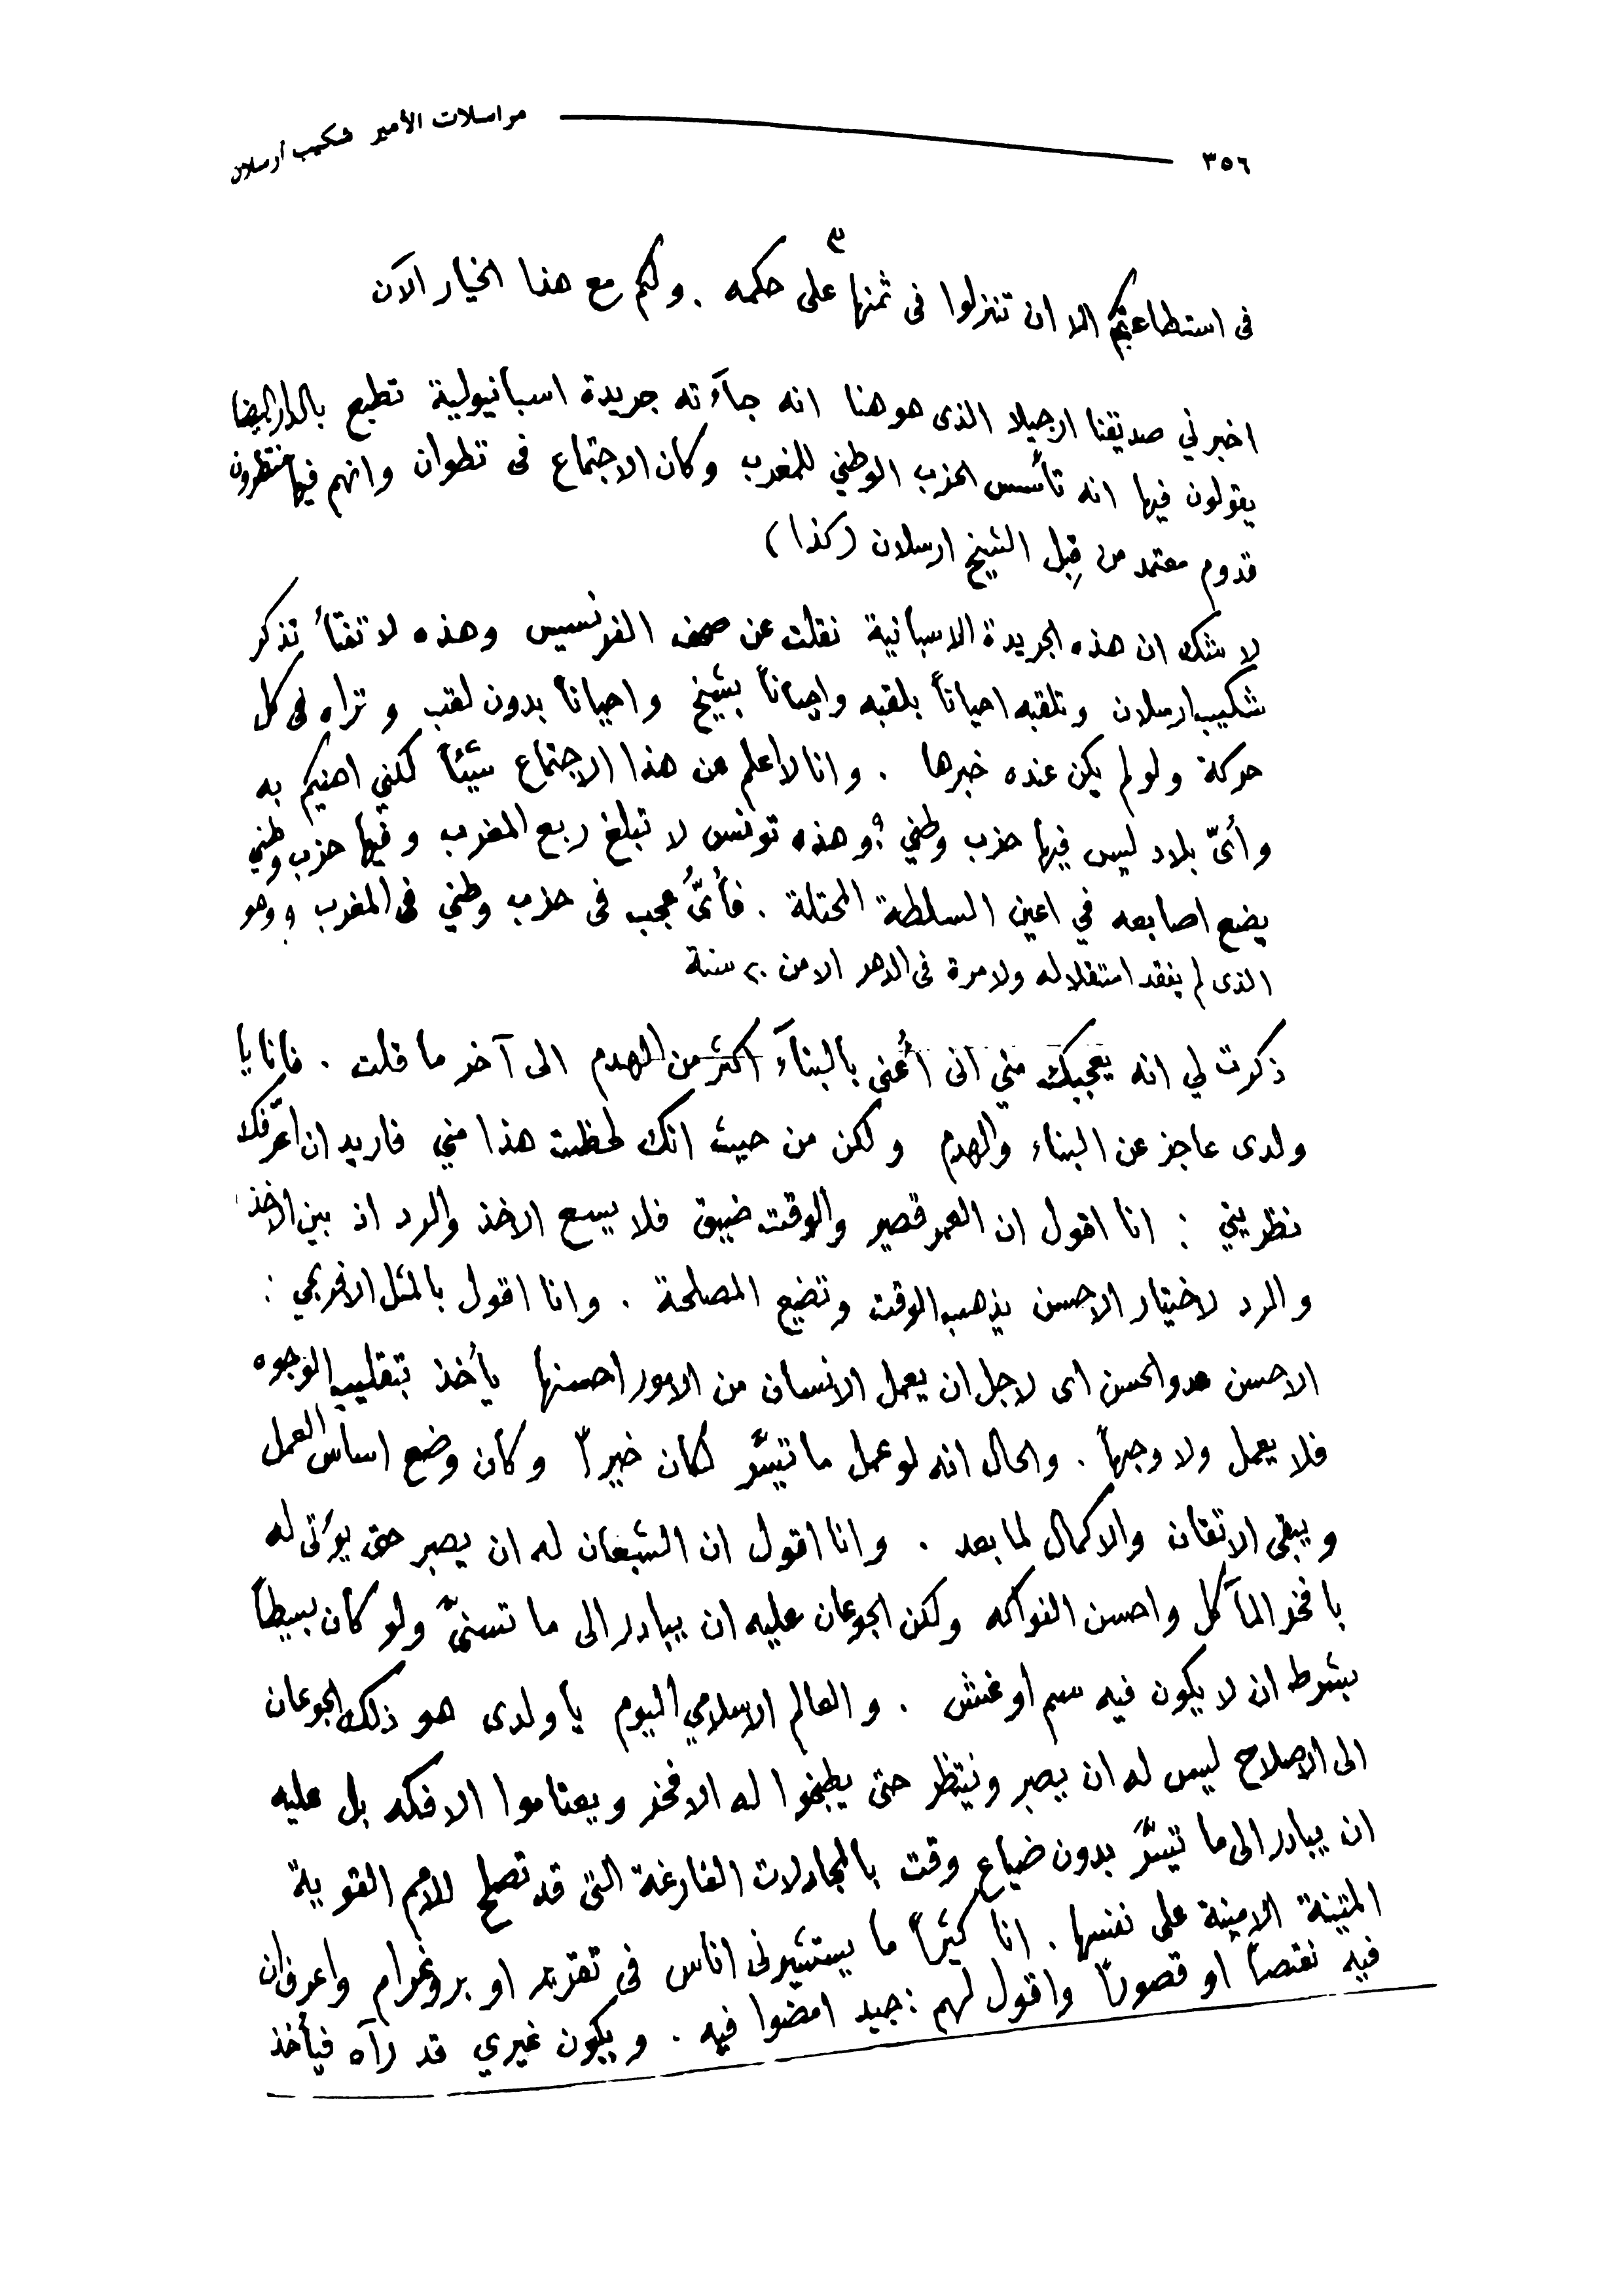 ٣٥٦ مراسلات الأمير شكيب أرسلان
٣
فى استطاعتكم الا ان تنزلوا فى ثمنها على حكمه . ولكم مع هذا الخيار الآن
اخبرني صديقنا ارجيلا الذى هو هنا انه جاءته جريدة اسبانيولية تطبع بالدار البيضا
يقولون فيها انه تأسس الحزب الوطني للمغرب وكان الاجتماع فى تطوان وانهم فيها منتظرون
قدوم معتمد من قِبل الشيخ ارسلان (كذا)
لا شك ان هذه الجريدة الاسبانية نقلت عن صحف الفرنسيس وهذه لا تفتأ تذكر
شكيب ارسلان وتلقبه احياناً بلقبه واحياناً بشيخ واحياناً بدون لقب وتراه فى كل
حركة ولو لم يكن عنده خبرها . وانا لا اعلم عن هذا الاجتماع شيئاً لكني اهنيكم به
وأىّ بلاد ليس فيها حزب وطني ؟ وهذه تونس لا تبلغ ربع المغرب وفيها حزب وطني
يضع اصابعه في اعين السلطة المحتلة . فأىُّ عجب فى حزب وطني فى المغرب ؟ وهو
الذى لم يفقد استقلاله ولا مرة فى الدهر الا من ٢٠ سنة
ذكرت لي انه يعجبك مني انى أُعنى بالبناء اكثر من الهدم الى آخر ما قلت . فانا يا
ولدى عاجز عن البناء والهدم ولكن من حيث انك لحظت هذا مني فاريد ان اعرّفك
نظريتي : انا اقول ان العمر قصير والوقت ضيق فلا يسع الاخذ والرد اذ بين الاخذ
والرد لاختيار الاحسن يذهب الوقت وتضيع المصلحة . وانا اقول بالمثل الافرنجي :
الاحسن عدو الحسن اى لاجل ان يعمل الانسان من الامور احسنها يأخذ بتقليب الوجوه
فلا يعمل ولا وجهاً . والحال انه لو عمل ما تيسَّر لكان خيراً وكان وضع اساس العمل
ويبقى الاتقان والاكمال لما بعد . وانا اقول ان الشبعان له ان يصبر حتى يؤتى له
بافخر المآكل واحسن الفواكه ولكن الجوعان عليه ان يبادر الى ما تسنىّ ولو كان بسيطاً
بشرط ان لا يكون فيه سم او غش . والعالم الاسلامي اليوم يا ولدى هو ذلك الجوعان
الى الاصلاح ليس له ان يصبر وينتظر حتى يطبخوا له الافخر ويعتاموا الافكه بل عليه
ان يبادر الى ما تيسَّر بدون ضياع وقت بالمجادلات الفارغة التى قد تصلح للامم القوية
المتينة الامينة على نفسها . انا كثيراً ما يستشيرنى اناس فى تقرير او بروغرام واعرف ان
فيه نقصاً او قصوراً واقول لهم : جيد امضوا فيه . ويكون غيري قد رآه فيأخذ